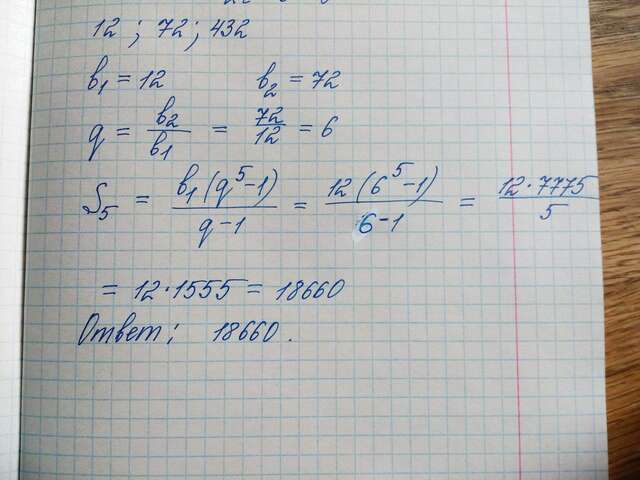 12 ; 72 ; 432
b₁ = 12 b₂ = 72
q = b₂/b₁ = 72/12 = 6
S₅ = b₁(q⁵-1)/q-1 = 12(6⁵-1)/6-1 = 12·7775/5
= 12·1555 = 18660
Ответ: 18660.